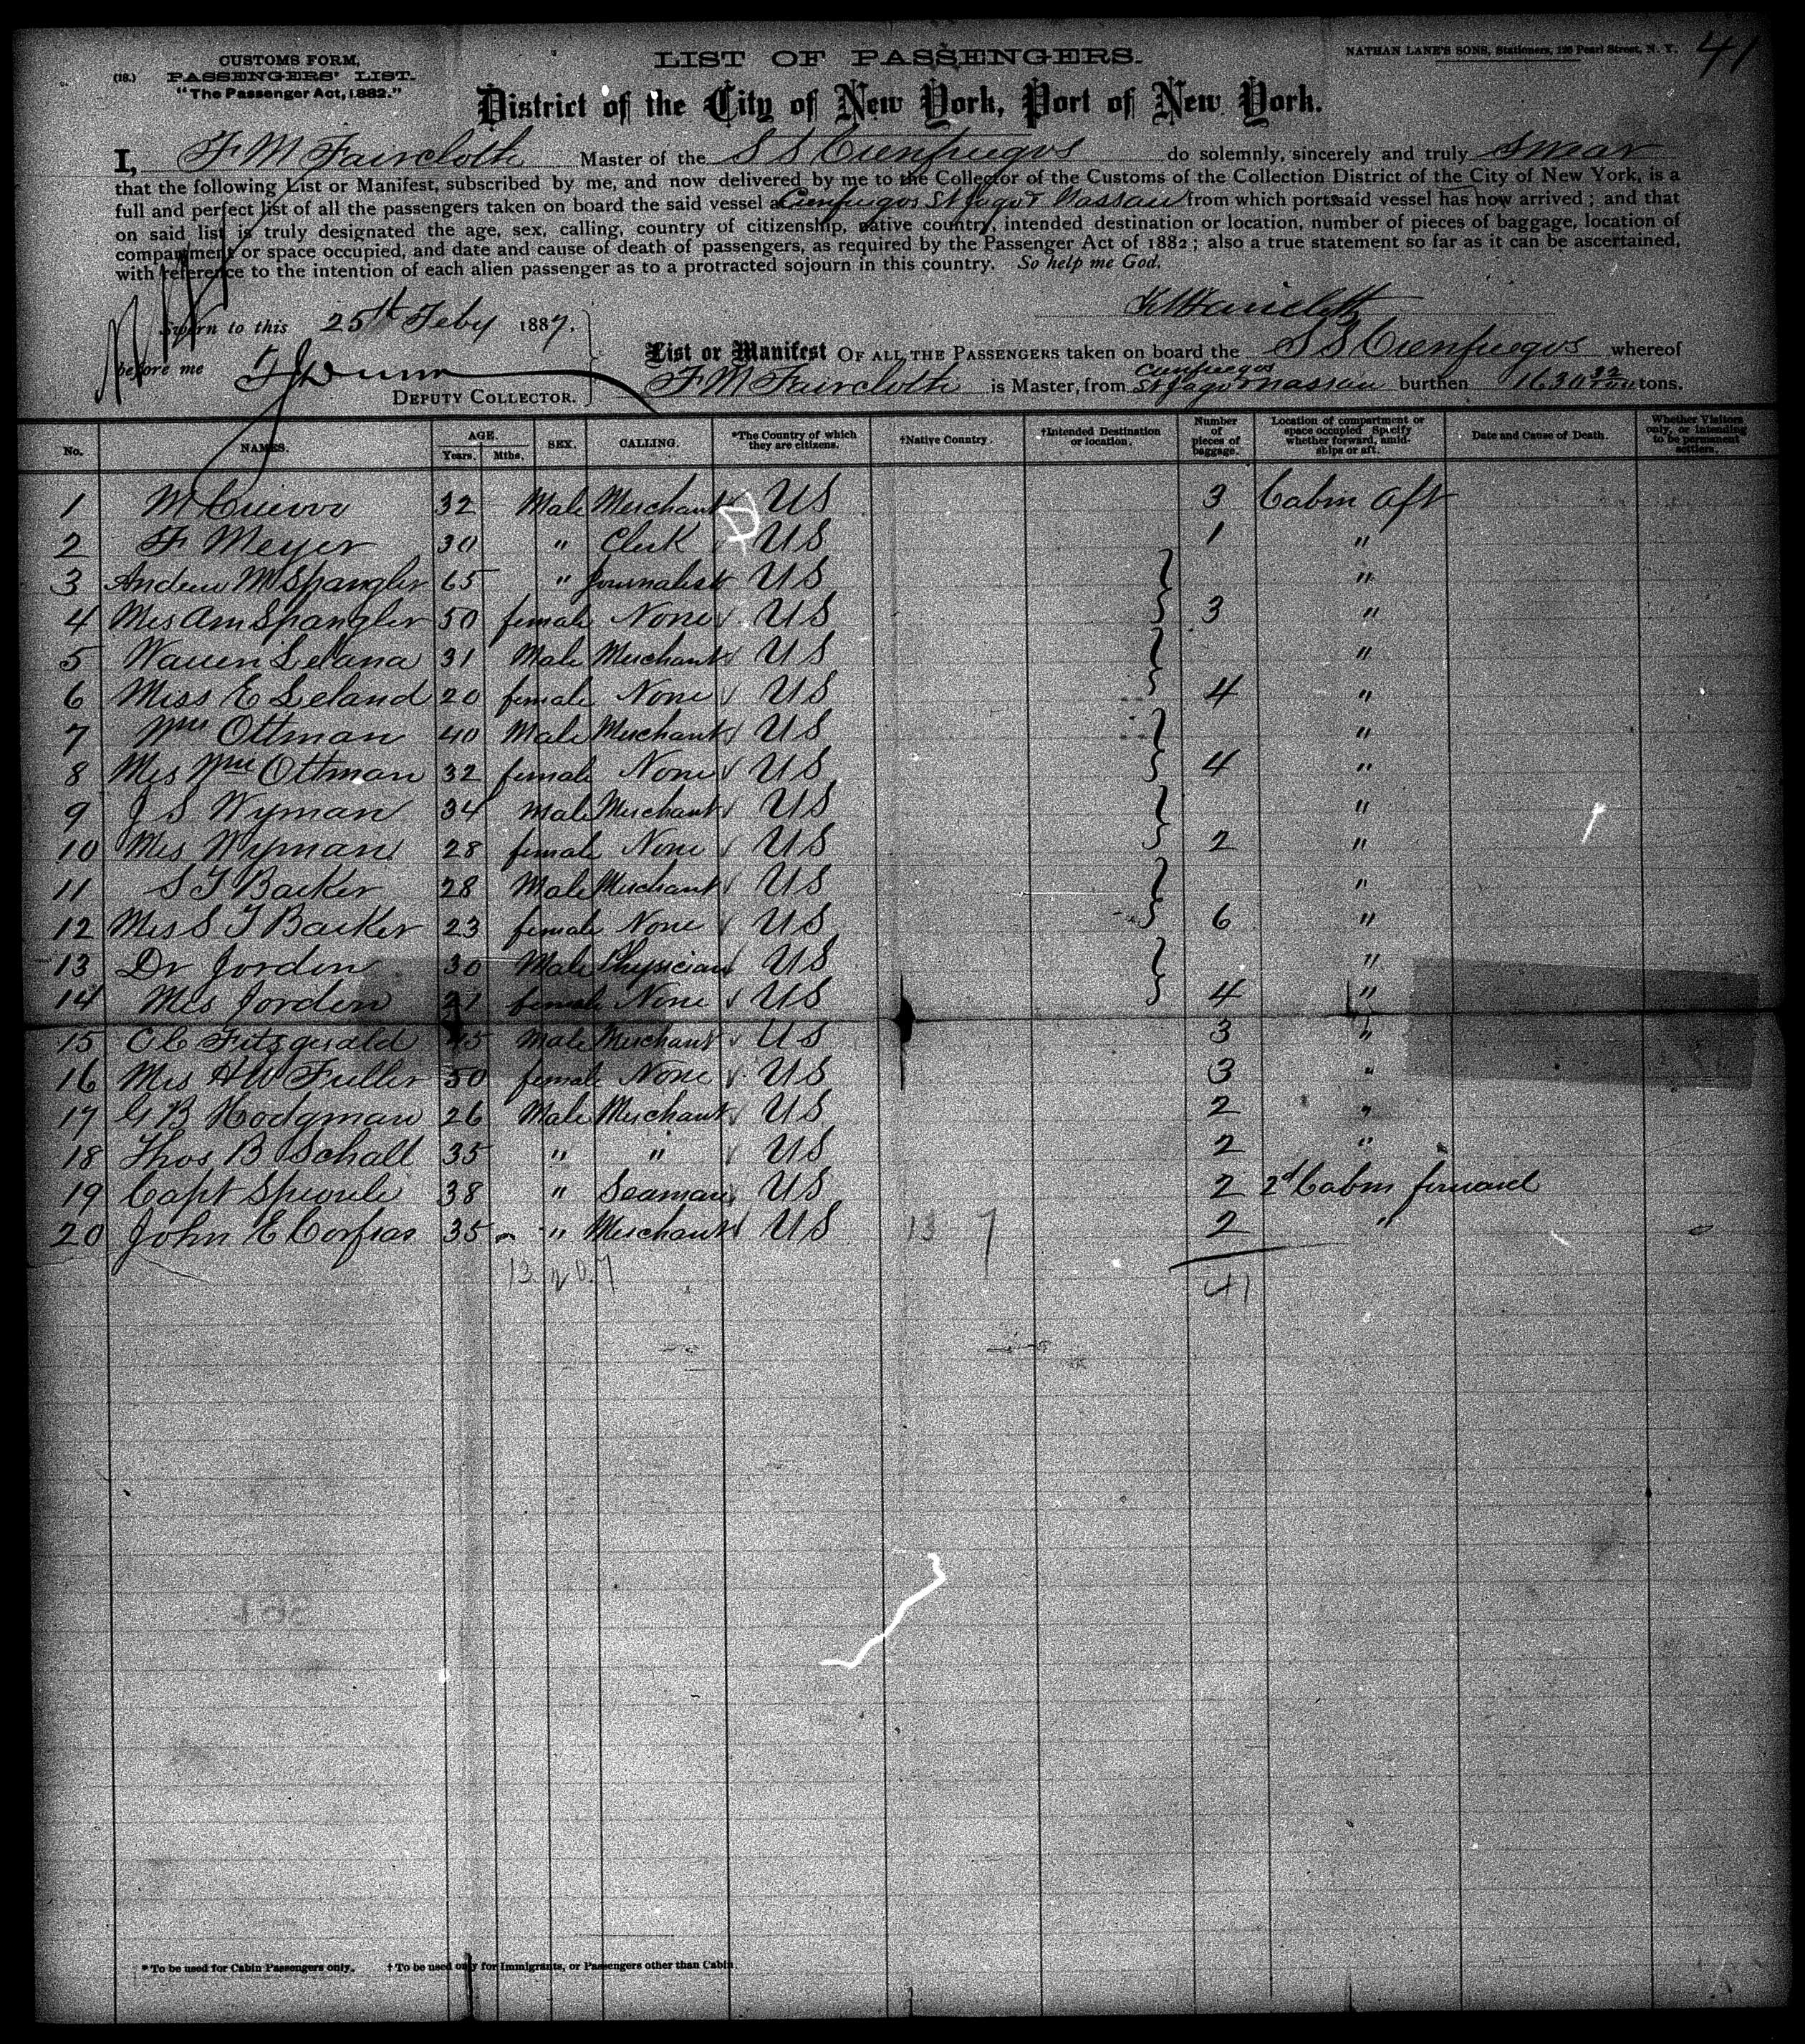 41
CUSTOMS FORM,
(18.) PASSENGERS' LIST.
"The Passenger Act, 1882."
LIST OF PASSENGERS.
NATHAN LANE'S SONS, Stationers, 128 Pearl Street, N. Y.
District of the City of New York, Port of New York.
I, F M Faircloth Master of the S S Cienfuegos do solemnly, sincerely and truly swear
that the following List or Manifest, subscribed by me, and now delivered by me to the Collector of the Customs of the Collection District of the City of New York, is a
full and perfect list of all the passengers taken on board the said vessel at Cienfuegos St Jago & Nassau from which ports said vessel has now arrived; and that
on said list is truly designated the age, sex, calling, country of citizenship, native country, intended destination or location, number of pieces of baggage, location of
compartment or space occupied, and date and cause of death of passengers, as required by the Passenger Act of 1882; also a true statement so far as it can be ascertained,
with reference to the intention of each alien passenger as to a protracted sojourn in this country. So help me God.
F M Faircloth
Sworn to this 25th Feby 1887.
before me
DEPUTY COLLECTOR.
List or Manifest OF ALL THE PASSENGERS taken on board the S S Cienfuegos whereof
F M Faircloth is Master, from Cienfuegos St Jago & Nassau burthen 1630 32/100 tons.
No. NAMES. AGE. Years. Mths. SEX. CALLING. *The Country of which they are citizens. †Native Country. †Intended Destination or location. Number of pieces of baggage. Location of compartment or space occupied Specify whether forward, amidships or aft. Date and Cause of Death. Whether Visitors only, or intending to be permanent settlers.
1 M 32 Male Merchant US 3 Cabin Aft
2 F Meyer 30 " Clerk US 1 "
3 Andrew M Spangler 65 " Journalist US "
4 Mrs Am Spangler 50 female None US 3 "
5 Warren Leland 31 Male Merchant US "
6 Miss E Leland 20 female None US 4 "
7 Wm Ottman 40 Male Merchant US "
8 Mrs Wm Ottman 32 female None US 4 "
9 J S Wyman 34 Male Merchant US "
10 Mrs Wyman 28 female None US 2 "
11 S T Barker 28 Male Merchant US "
12 Mrs S T Barker 23 female None US 6 "
13 Dr Jorden 30 Male Physician US "
14 Mrs Jorden 21 female None US 4 "
15 C C Fitzgerald 45 Male Merchant US 3 "
16 Mrs H W Fuller 50 female None US 3 "
17 G B Hodgman 26 Male Merchant US 2 "
18 Thos B Schall 35 " " US 2 "
19 Capt Sproule 38 " Seaman US 2 2d Cabin forward
20 John E Corfias 35 " Merchant US 13 7 2 "
41
*To be used for Cabin Passengers only. †To be used only for Immigrants, or Passengers other than Cabin.